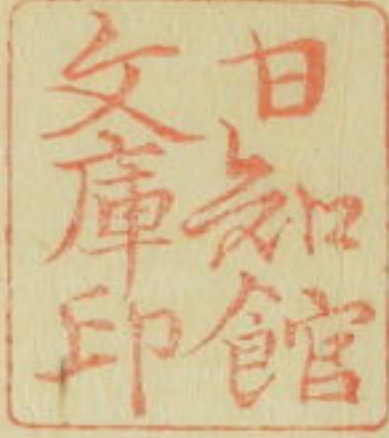 日知館
文庫印